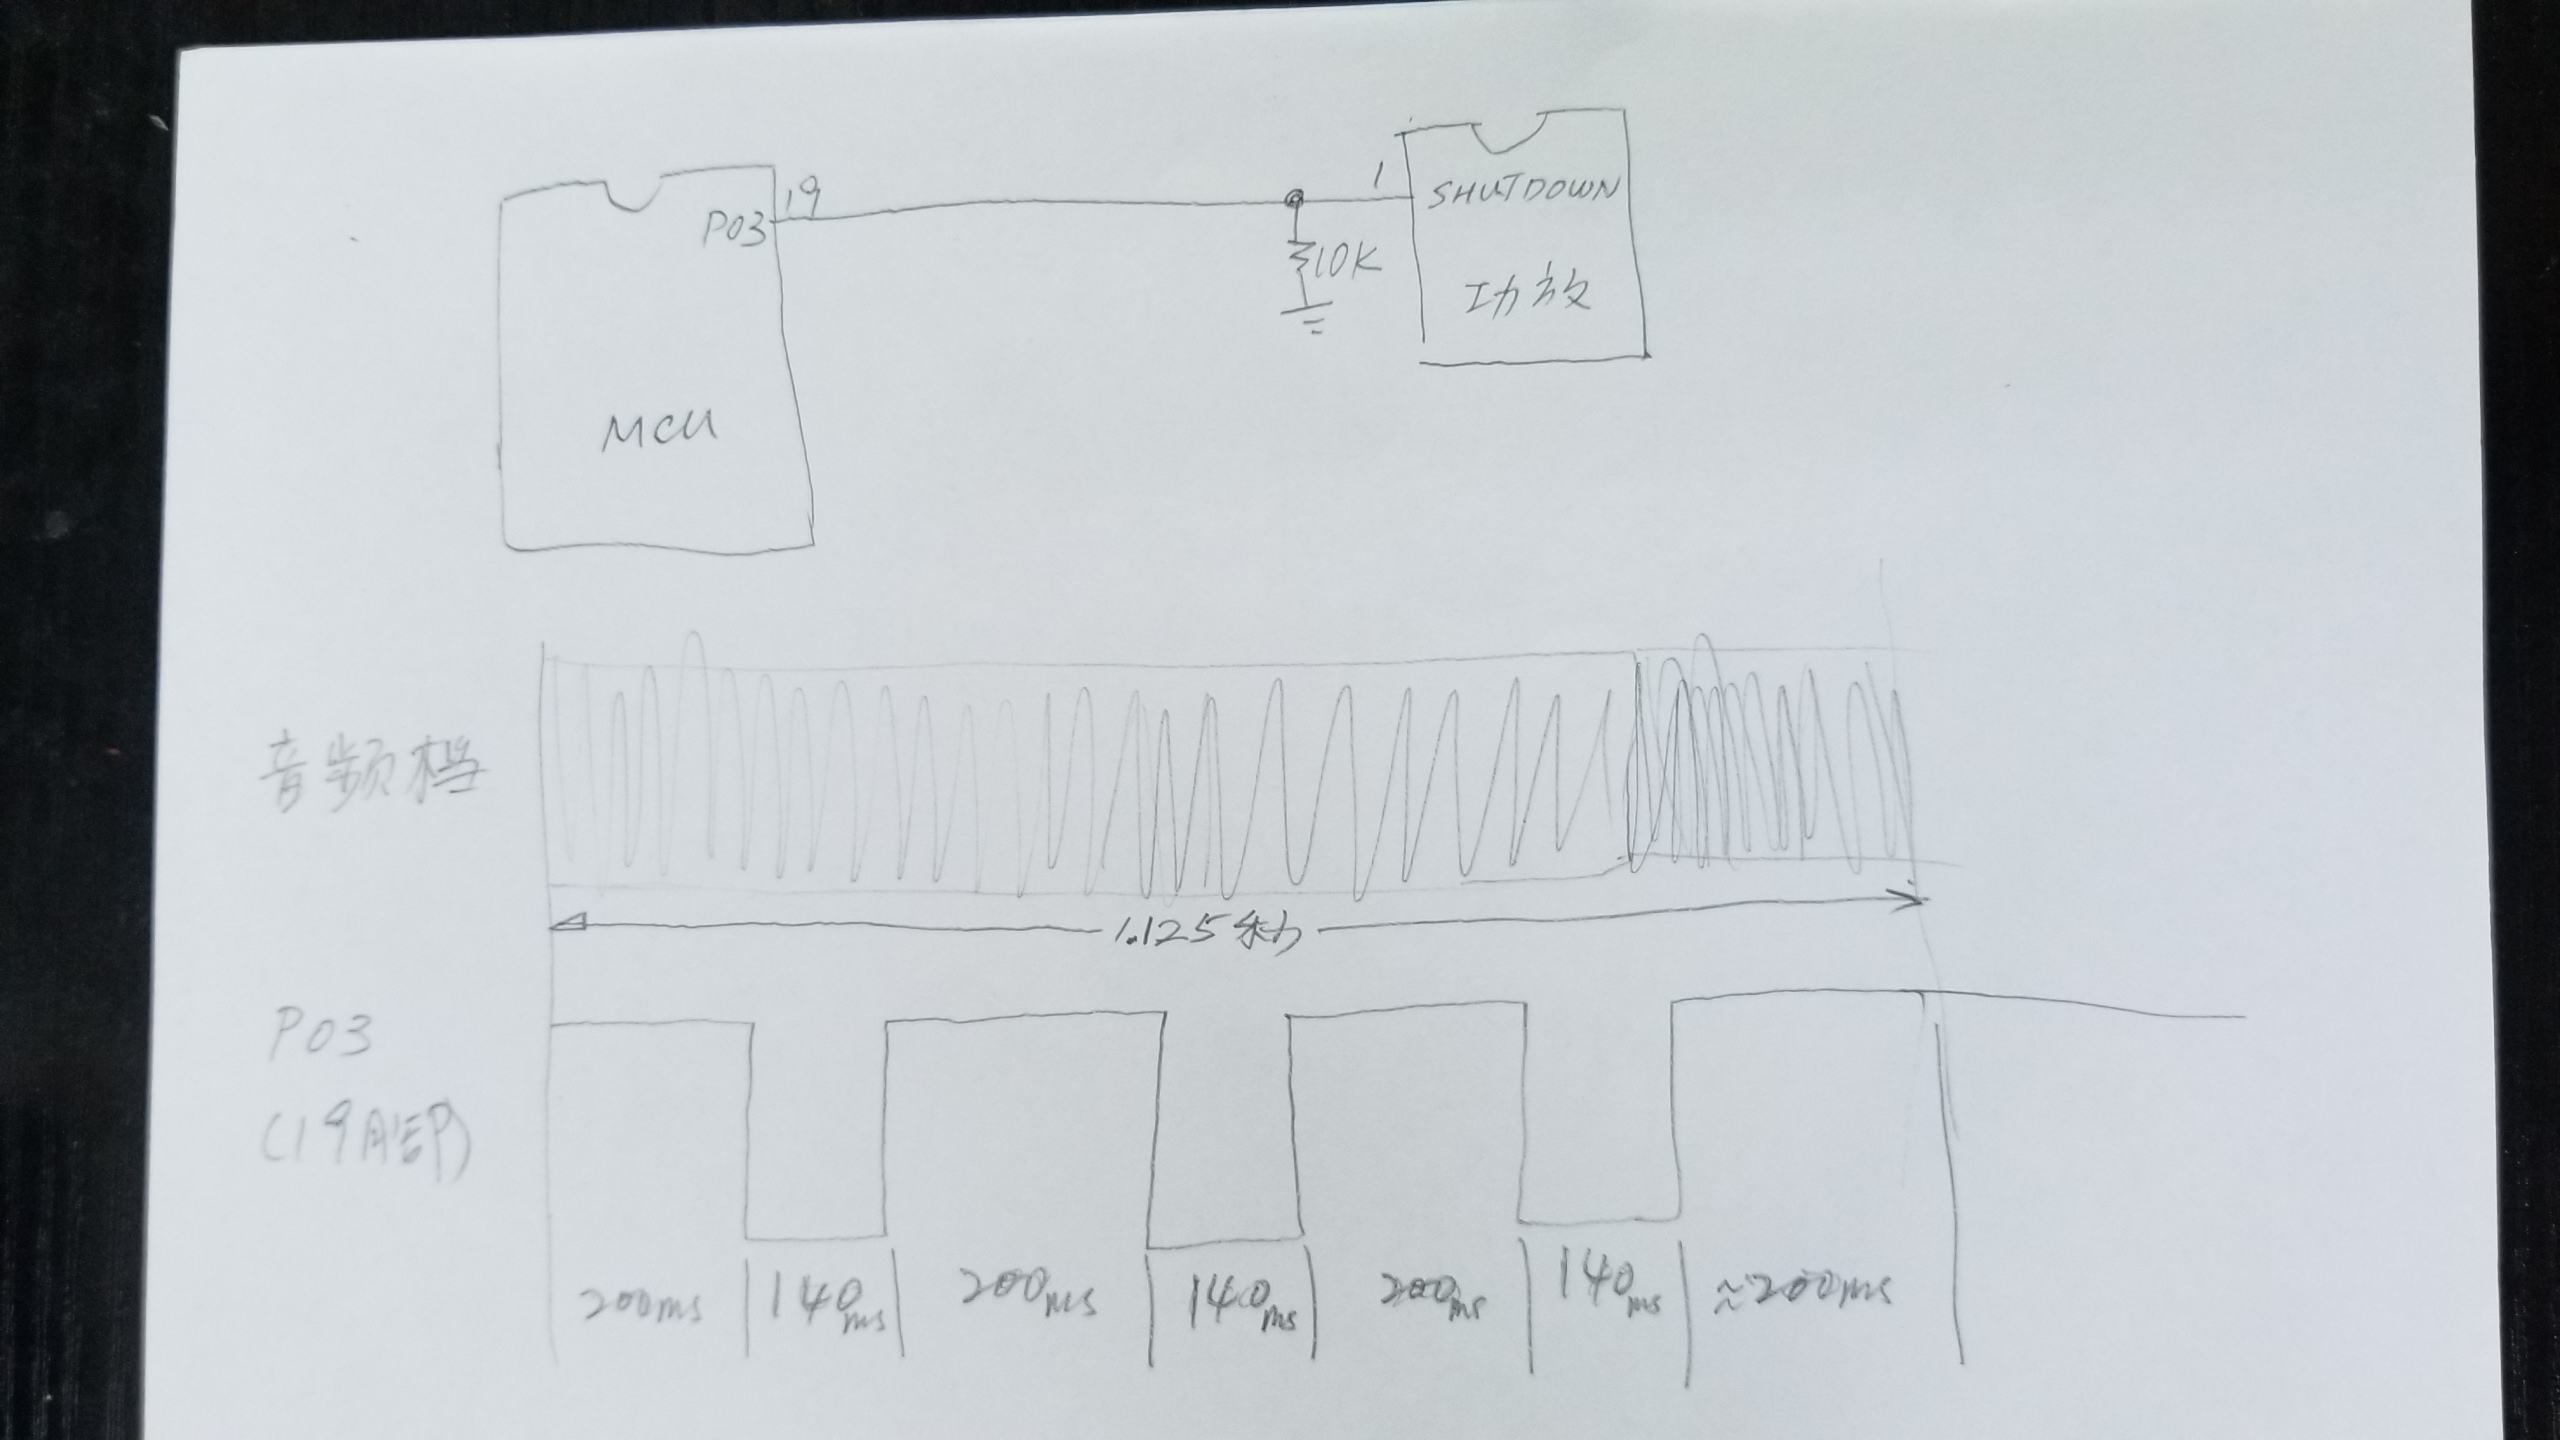 P03
19
1
SHUTDOWN
10K
功放
MCU
音频档
1.125秒
P03
(19脚)
200ms 140ms 200ms 140ms 200ms 140ms ≈200ms